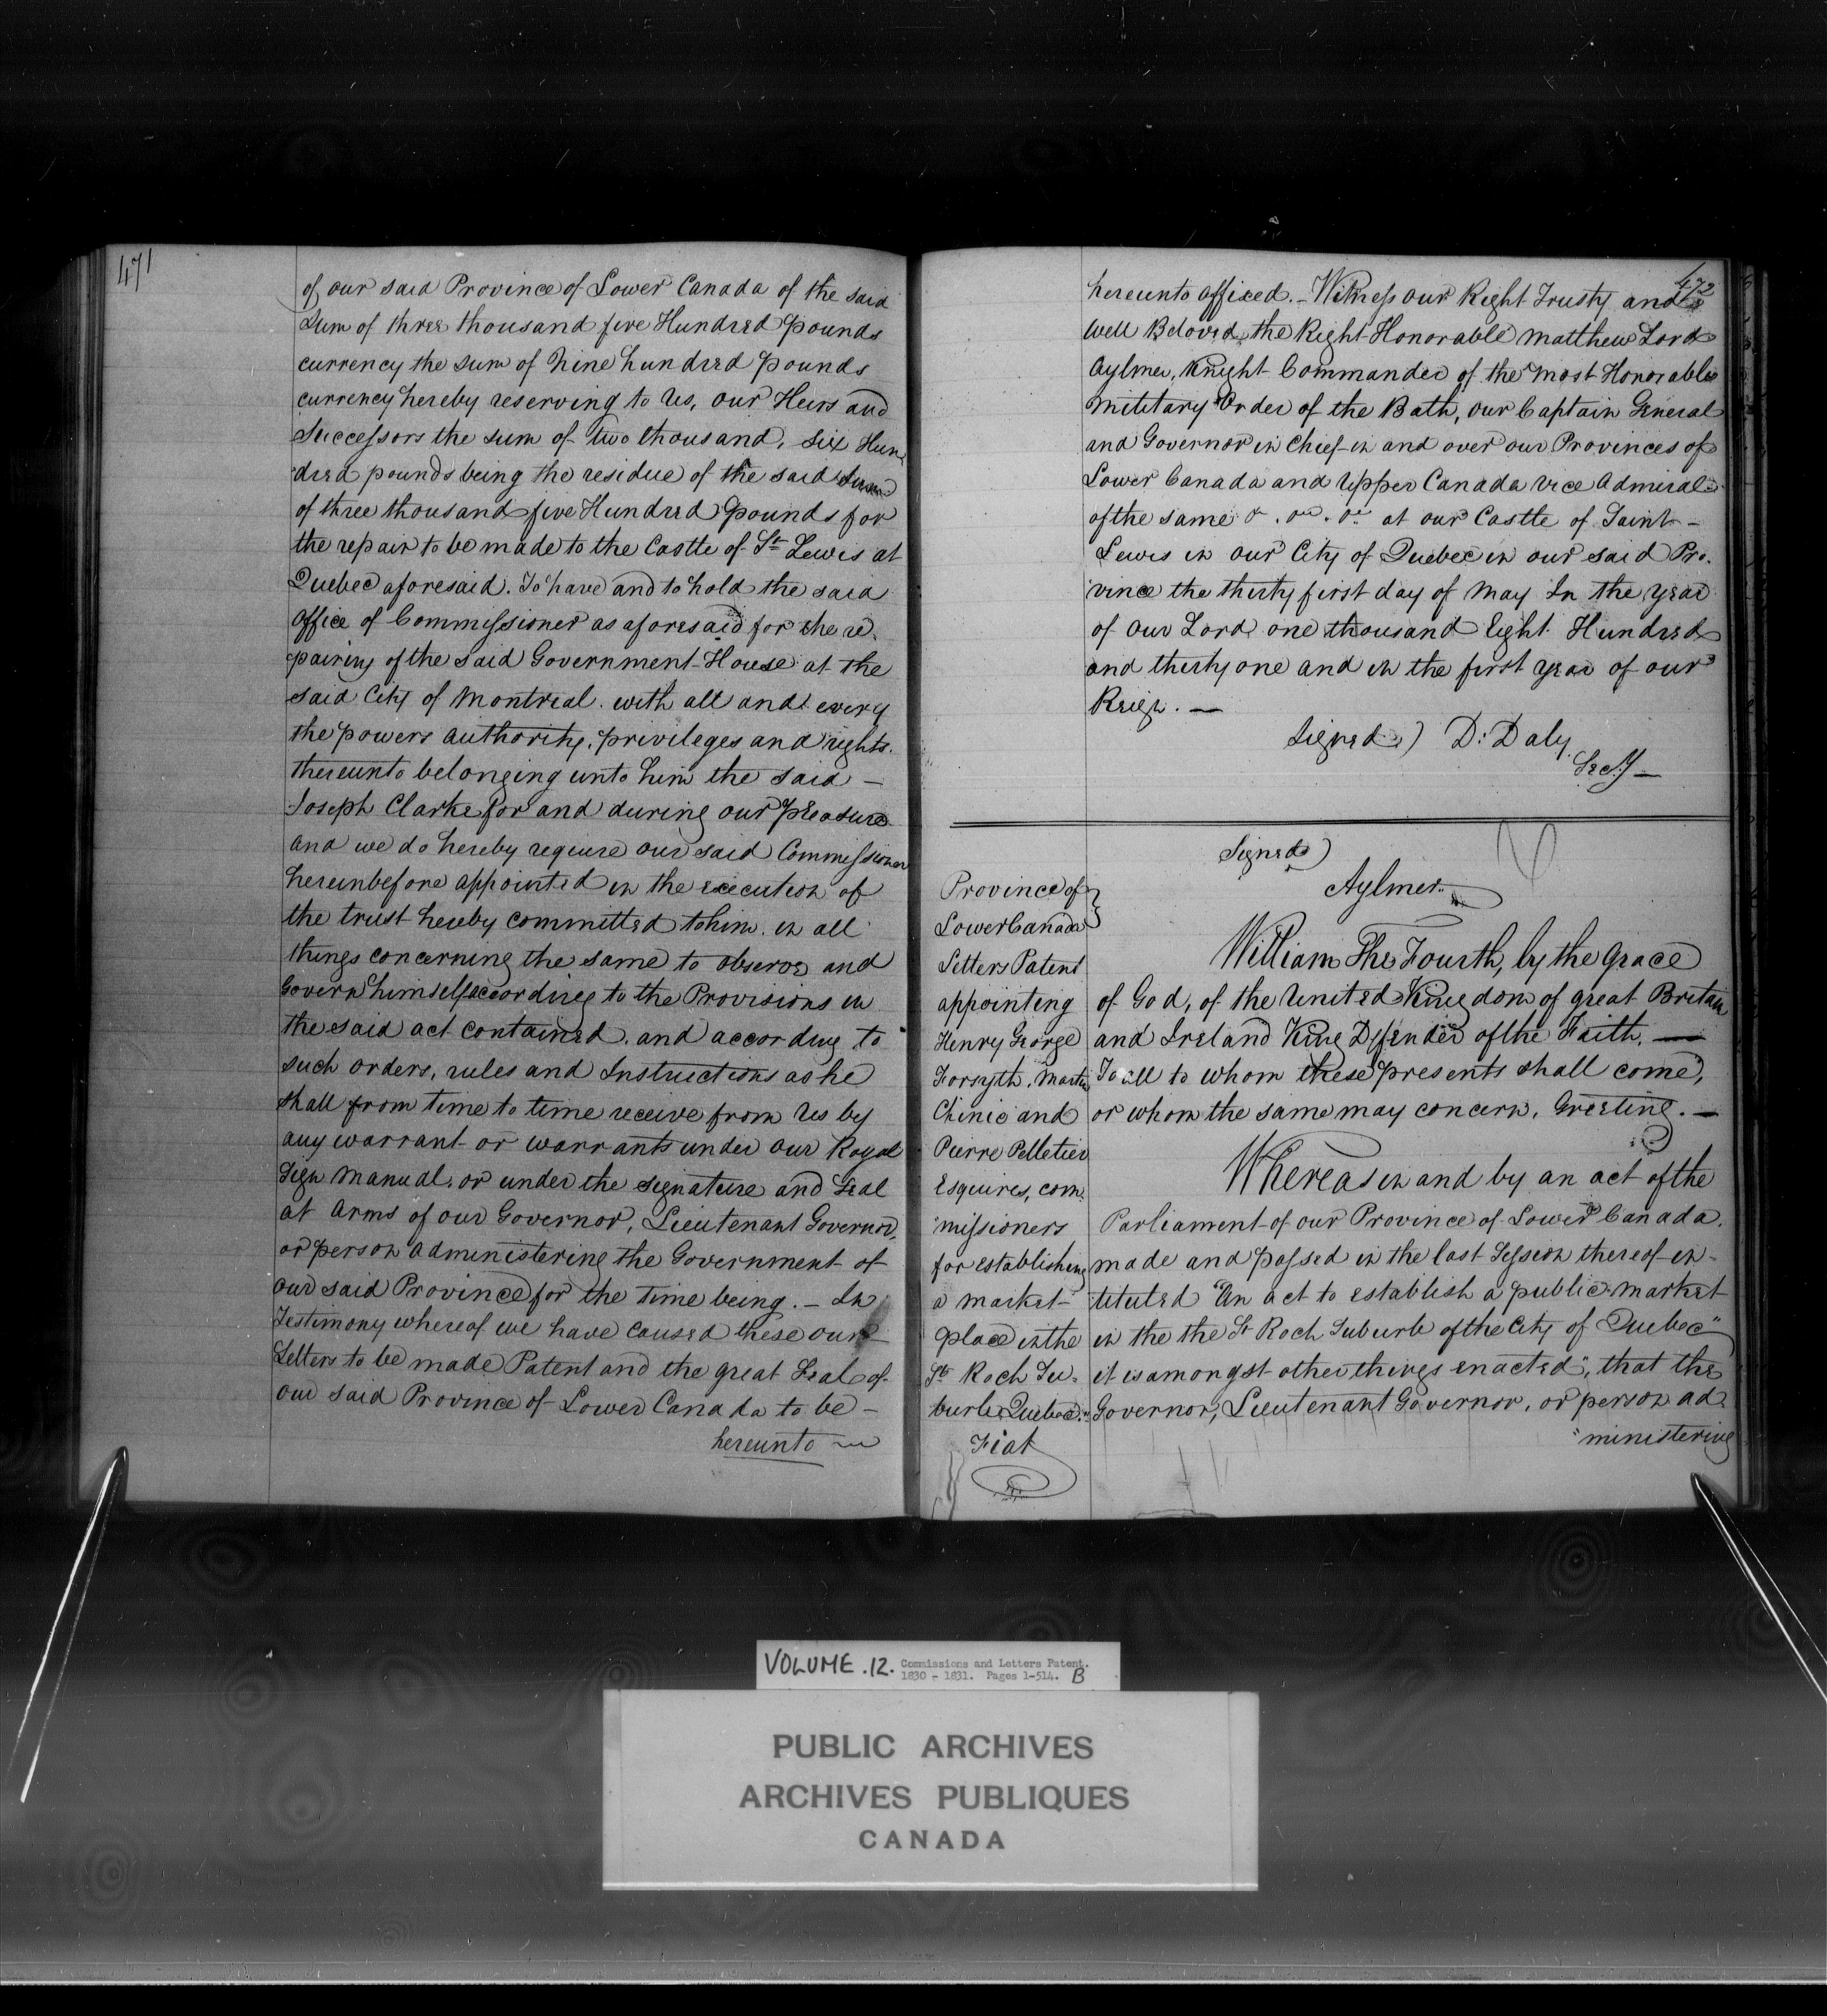 471
of our said Province of Lower Canada of the said
Sum of three thousand five Hundred Pounds
currency the sum of Nine hundred pounds
currency hereby reserving to Us, our Heirs and
Successors the sum of two thousand, six Hun
dred pounds being the residue of the said sum
of three thousand five Hundred Pounds for
the repair to be made to the Castle of St. Lewis at
Quebec aforesaid. To have and to hold the said
office of Commissioner as aforesaid for the re
pairing of the said Government House at the
said City of Montreal. with all and every
the powers authority, privileges and rights.
thereunto belonging unto him the said —
Joseph Clarke for and during our pleasure
And we do hereby require our said Commissioner
hereinbefore appointed in the execution of
the trust hereby committed to him. in all
things concerning the same to observe and
Govern himself according to the Provisions in
the said act contained. and according to
such orders, rules and Instructions as he
shall from time to time receive from Us by
any warrant or warrants under our Royal
Sign Manual. or under the signature and Seal
at Arms of our Governor, Lieutenant Governor,
or person administering the Government of
our said Province for the time being. — In
Testimony whereof we have caused these our
Letters to be made Patent and the great Seal of
our said Province of Lower Canada to be —
hereunto
472
hereunto affixed. — Witness our Right Trusty and
well Beloved the Right Honorable Matthew Lord
Aylmer, Knight Commander of the Most Honorable
Military Order of the Bath, our Captain General
and Governor in Chief in and over our Provinces of
Lower Canada and Upper Canada vice Admiral
of the same &c. &c. &c. at our Castle of Saint —
Lewis in our City of Quebec in our said Pro.
vince the thirty first day of May In the year
of our Lord one thousand Eight Hundred
and thirty one and in the first year of our
Reign. —
Signed) D. Daly
Secy —
Signed)
Aylmer.
Province of
Lower Canada
Letters Patent
appointing
Henry George
Forsyth, Martin
Chinic and
Pierre Pelletier
Esquires, com.
missioners
for establishing
a market
place in the
St. Roch Su.
burb, Quebec.
Fiat
William The Fourth, by the Grace
of God, of the United Kingdom of great Britain
and Ireland King Defender of the Faith. —
To all to whom these presents shall come,
or whom the same may concern, Greeting. —
Whereas in and by an act of the
Parliament of our Province of Lower Canada.
made and passed in the last Session thereof in-
tituted "An act to establish a public market
in the the St Roch Suburb of the City of Quebec"
it is amongst other things enacted", that the
Governor, Lieutenant Governor, or person ad
ministering
VOLUME .12. Commissions and Letters Patent.
1830 - 1831. Pages 1-514. B
PUBLIC ARCHIVES
ARCHIVES PUBLIQUES
CANADA